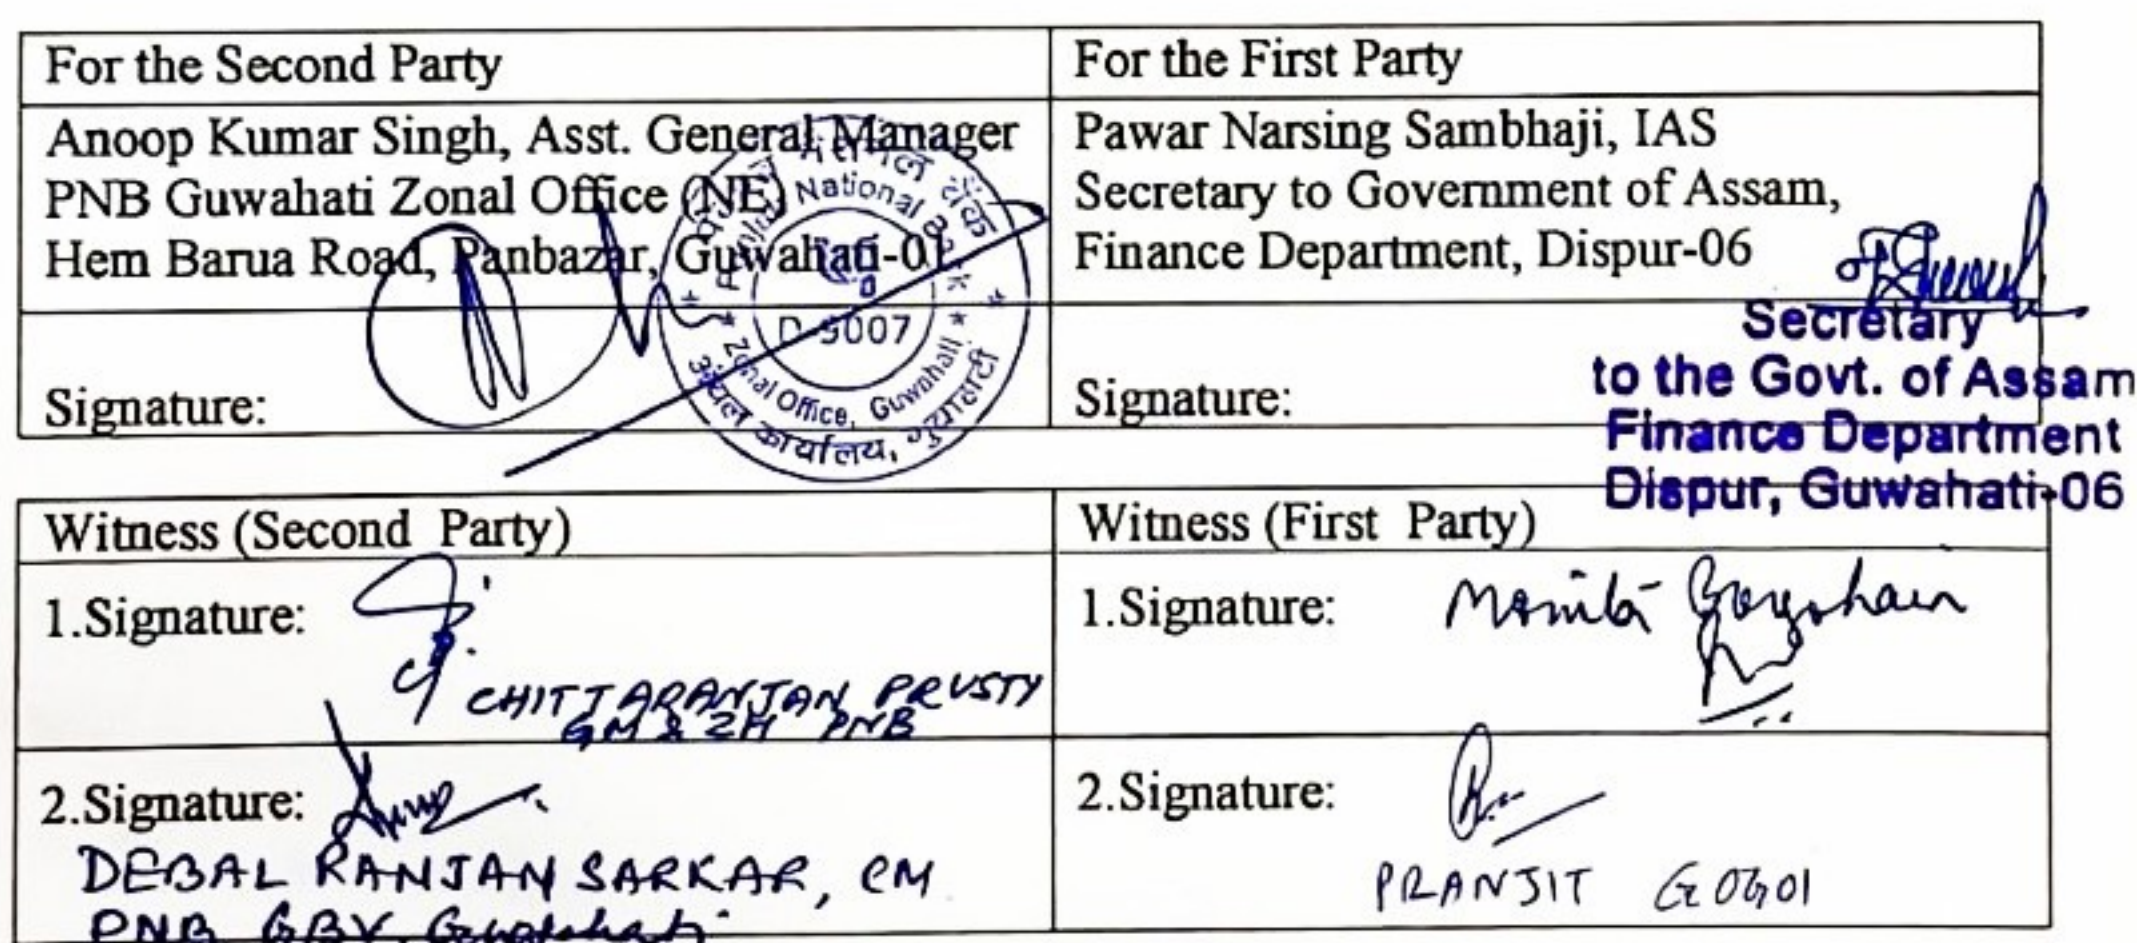 For the Second Party
For the First Party
Anoop Kumar Singh, Asst. General Manager
PNB Guwahati Zonal Office (NE)
Hem Barua Road, Panbazar, Guwahati-01
Pawar Narsing Sambhaji, IAS
Secretary to Government of Assam,
Finance Department, Dispur-06
Punjab National Bank
Zonal Office, Guwahati
अंचल कार्यालय, गुवाहाटी
Signature:
Signature:
Secretary
to the Govt. of Assam
Finance Department
Dispur, Guwahati-06
Witness (Second Party)
Witness (First Party)
1.Signature:
CHITTARANJAN PRUSTY
GM & ZH PNB
1.Signature:
2.Signature:
DEBAL RANJAN SARKAR, CM
PNB GBV Guwahati
2.Signature:
PRANJIT GOGOI